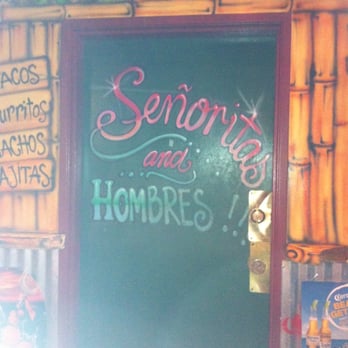 TACOS
Burritos
NACHOS
FAJITAS
Señoritas
and
HOMBRES!!
Corona